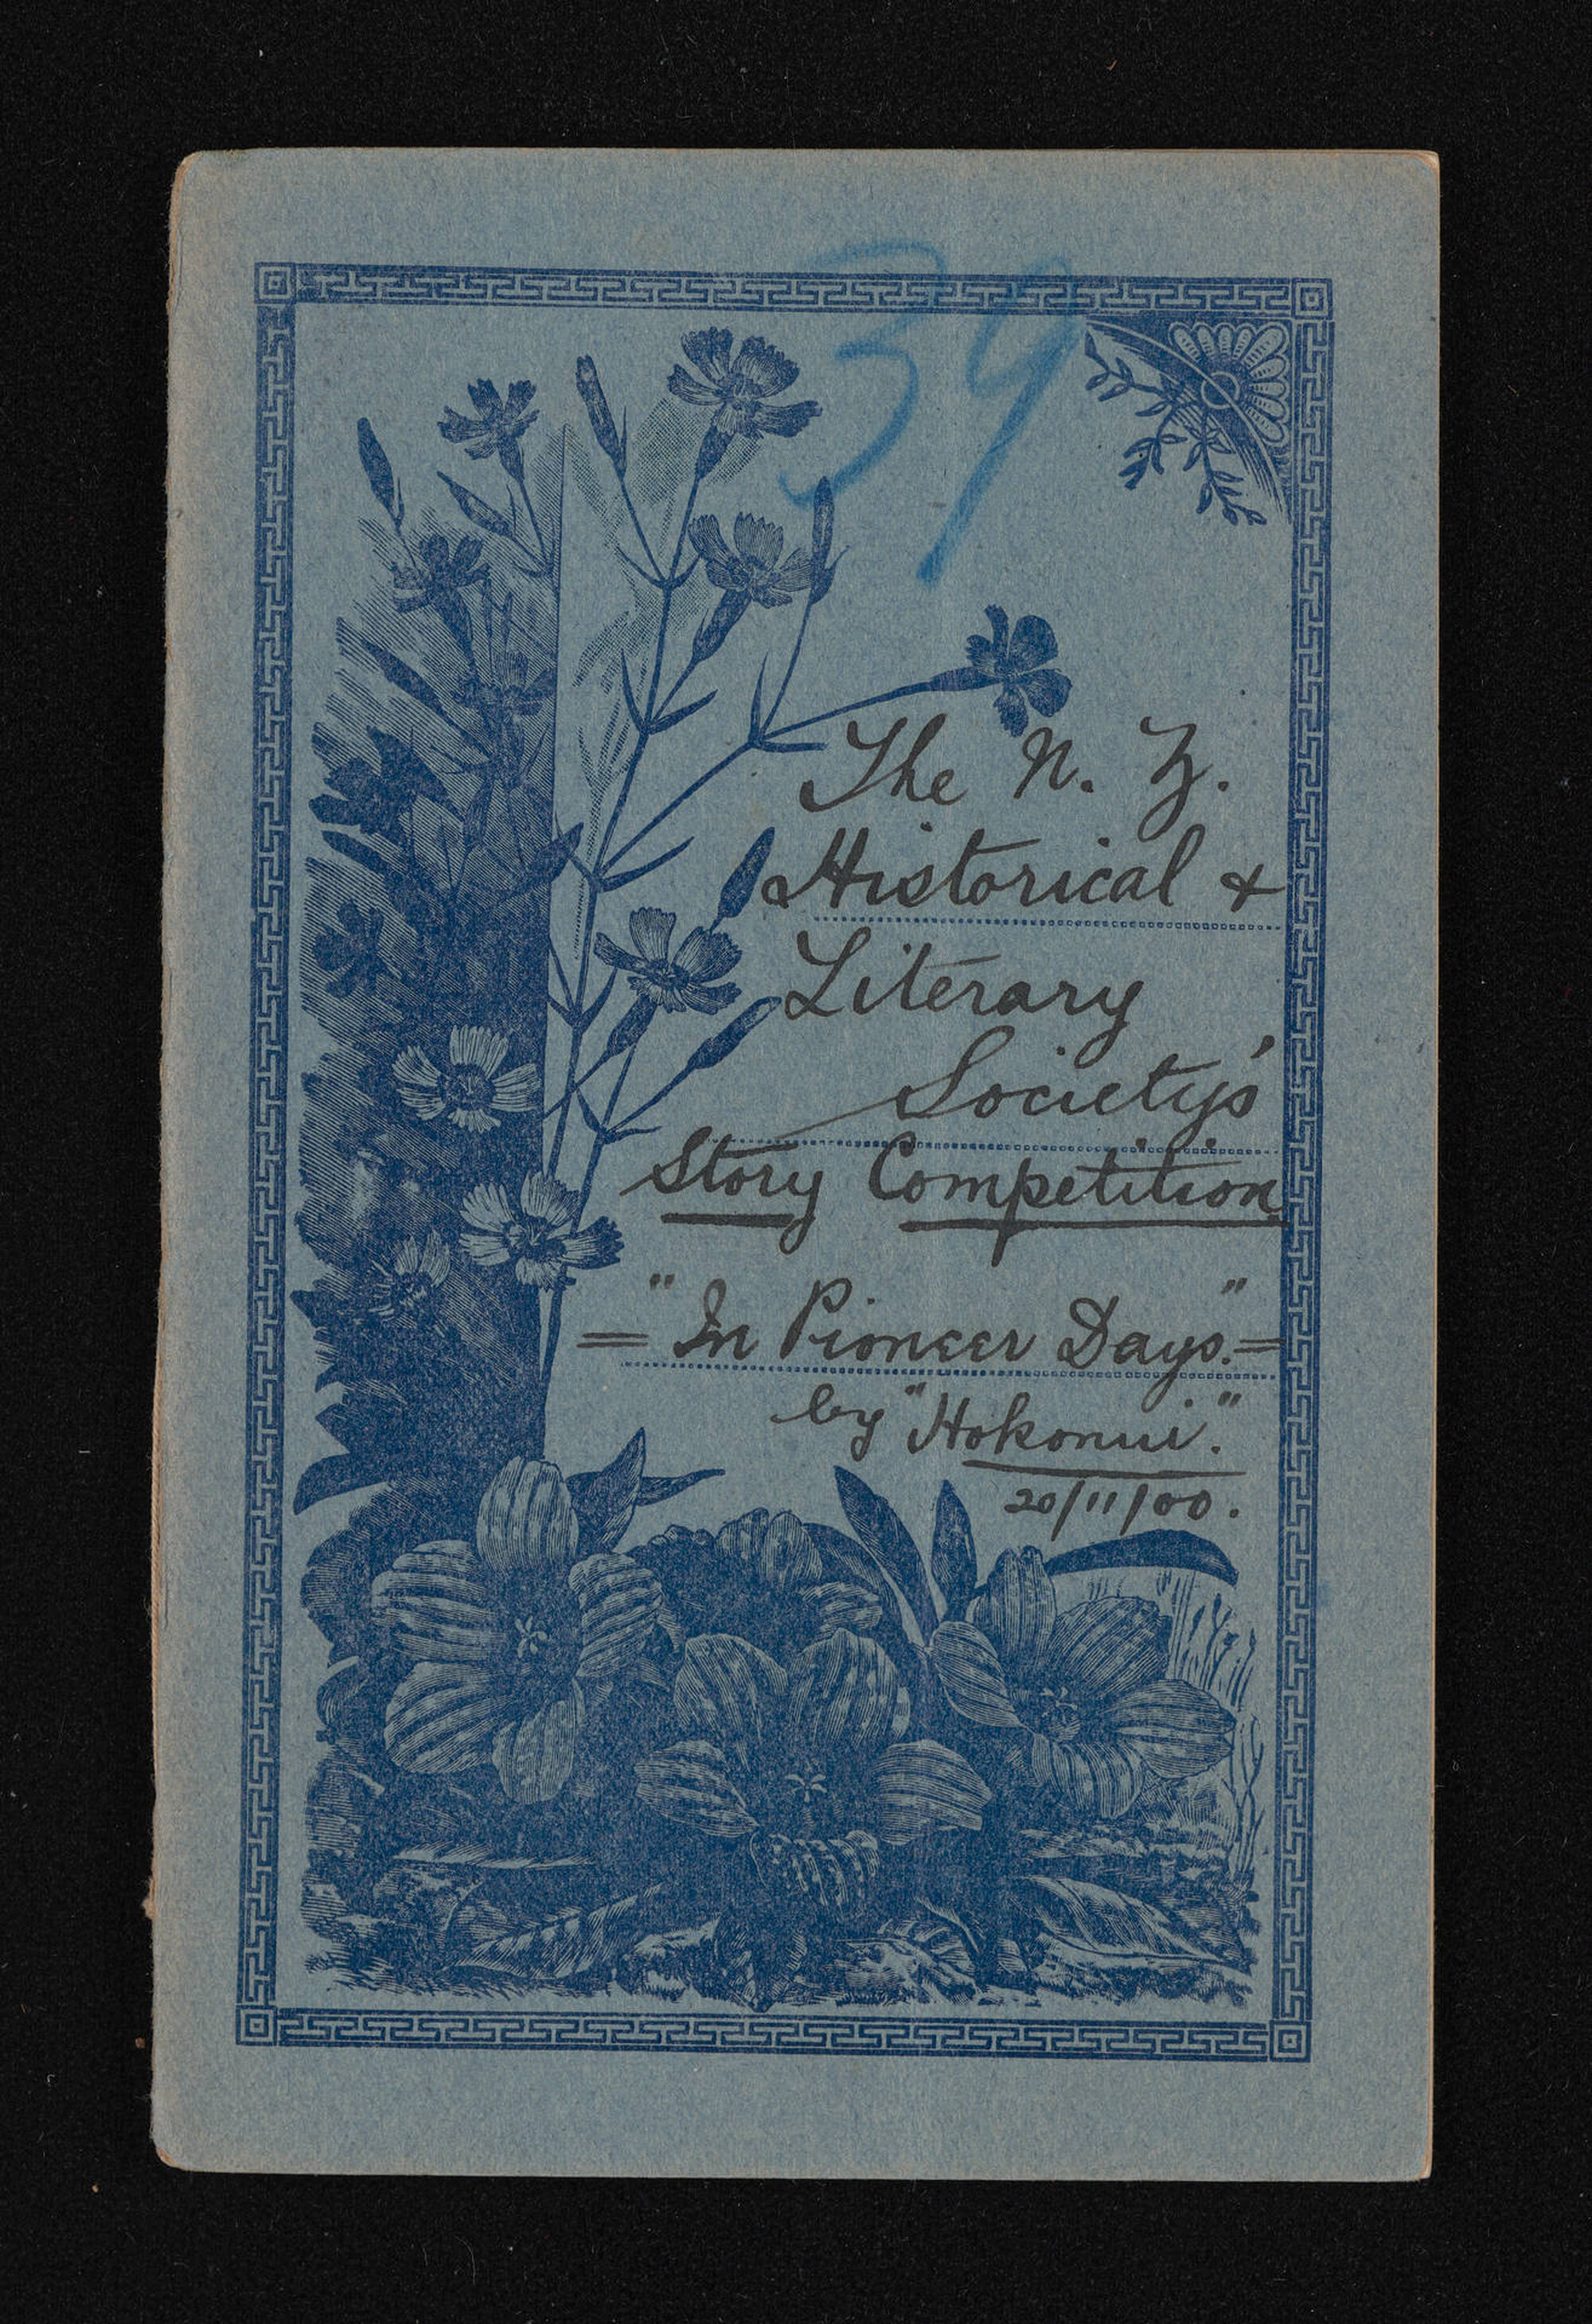 39
The N. Z.
Historical &
Literary
Society's
Story Competition
= "In Pioneer Days." =
by "Hokonui."
20/11/00.